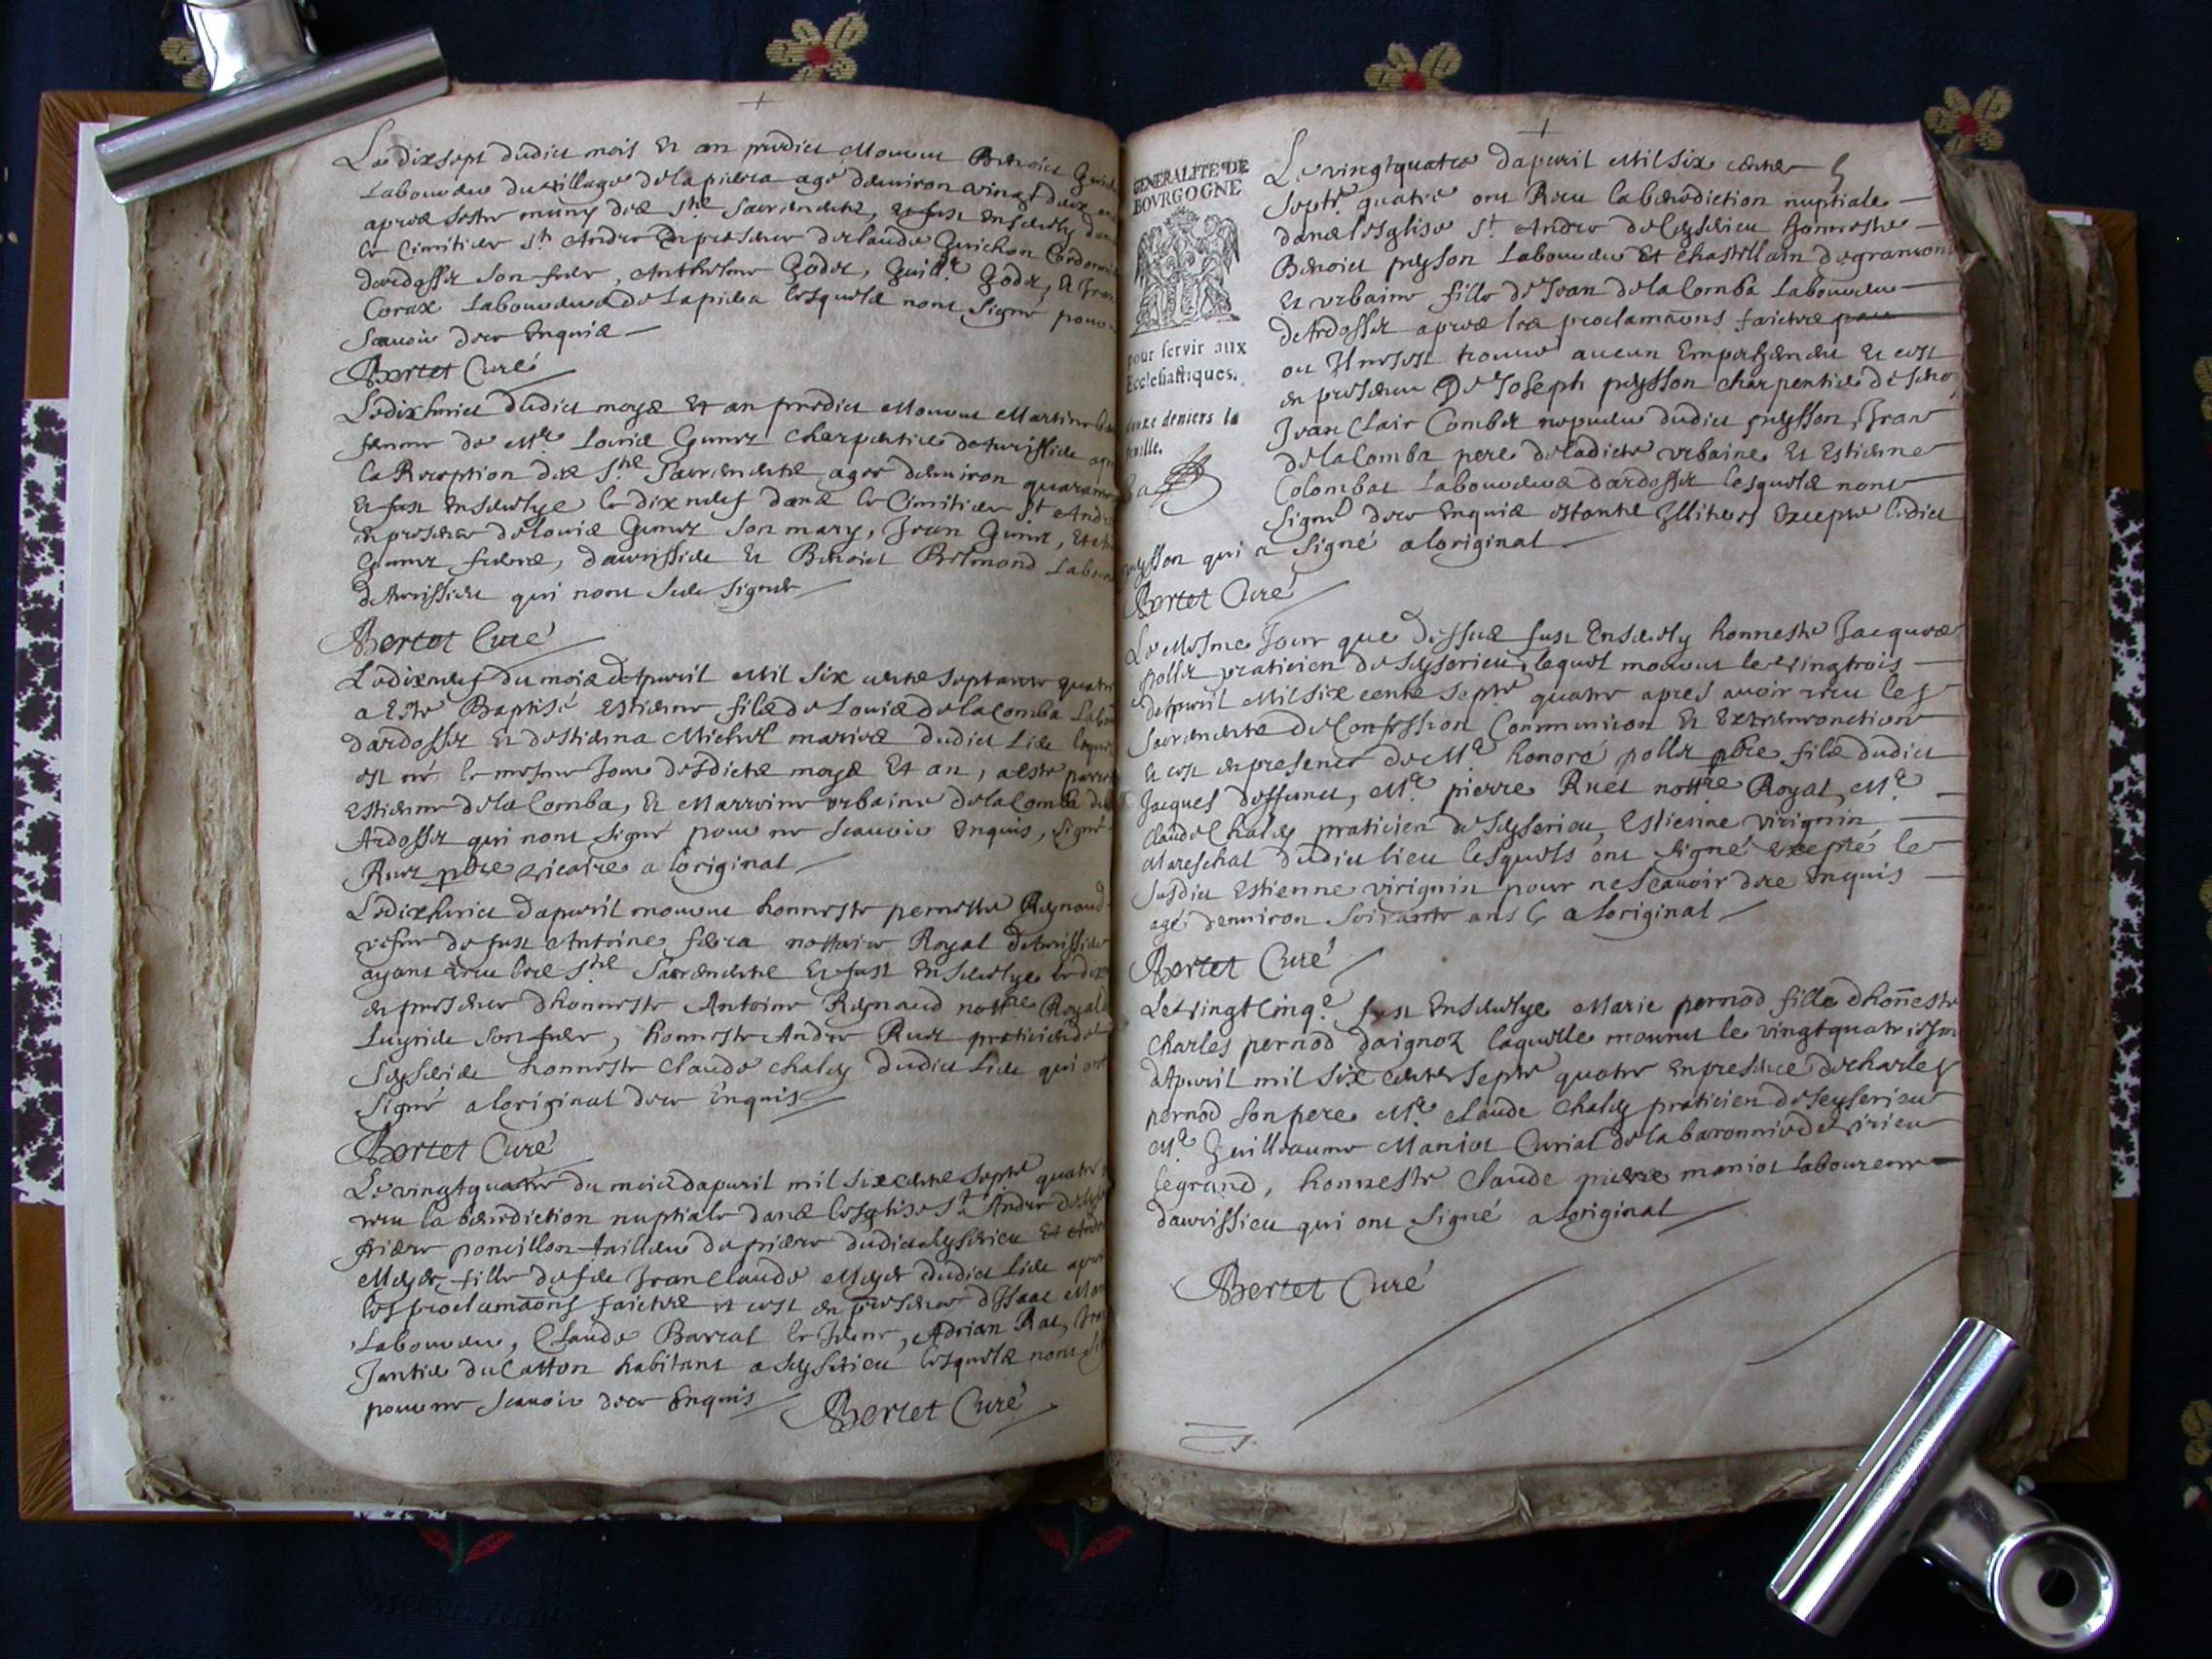 Le dixsept dudict mois et an predict mourut Benoict
Laboureur du village de la pierra agé denviron vingt deux
apres estre muny des Sts Sacrements, et fust ensevely dans
le Cimitiere St André en presence de Claude Guichon Cordonnier
dardosset son frere, Anthelme Godet, Guille Godet, et Jean
Corax Laboureurs de la pierra lesquels nont signé pour
scavoir de ce enquis
Bertet Curé
Le dixhuict dudict moys et an predict mourut Martine
femme de Mre Louis Gunet charpentier
la Reception des Sts Sacrements agee denviron quarante
et fust ensevelye le dix neuf dans le Cimitiere St André
en presence de Louis Gunet son mary, Jean Gunet,
Gunet freres, et Benoict Bremond
qui nont sceu signer
Bertet Curé
Le dixneuf du mois dApvril mil six cents septante quatre
a esté Baptisé Estienne fils de Louis de la Comba
dardosset et destienna Michel mariés dudict lieu
est né le mesme jour desdicts moys et an, a esté
Estienne de la Comba, et Marreine urbaine de la Comba
Ardosset qui nont signé pour ne scavoir enquis, signé
Ruet pbre vicaire a loriginal
Le dixhuict dapvril mourut honneste pernette Reynaud
vefve de fust Antoine notaire Royal
ayant receu les Sts Sacrements et fust ensevelye le dix
en presence dhonneste Antoine Reynaud nottre Royal
son frere, honneste André Ruet praticien de
honneste Claude chaley dudict lieu qui ont
signé a loriginal de ce enquis
Bertet Curé
Le vingtquatre du mois dapvril mil six cents septte quatre
receu la benediction nuptiale dans lesglise St André
pierre ponvillon tailleur de pierre dudict Et
Meyer fille de feu Jean Claude Meyer dudict lieu
les proclamaons faictes et cest en presence dIsaac
Laboureur, Claude Barrat le Jeune, Adrian Rat,
du Catton habitant a lesquels nont
pour ne scavoir de ce enquis
Bertet Curé
GENERALITE DE
BOVRGOGNE
pour servir aux
Ecclesiastiques.
deniers la
feuille.
Le vingtquatre dapvril mil six cents
septte quatre ont Receu la benediction nuptiale
dans lesglise St André honneste
Benoict peysson Laboureur Et chastellain
et urbaine fille de Jean de la Comba Laboureur
de Ardosset apres les proclamaons faictes
ou Il ne sest trouvé aucun Empeschement et cest
en presence De Joseph peysson charpentier
Jean Clair Combet nepveu dudict peysson, Jean
de la Comba pere de ladicte urbaine et Estienne
Colombat Laboureurs dardosset lesquels nont
signé de ce enquis estants Illiteres excepte ledict
peysson qui a signé a loriginal
Bertet Curé
Le mesme Jour que dessus fust ensevely honneste Jacques
pollet praticien de Seyserieu, lequel mourut le vingtrois
dapvril mil six cents septte quatre apres avoir receu les
sacrements de Confession Communion et Extremeonction
et cest en presence de Mre honoré pollet pbre fils dudict
Jacques deffunct, Mre pierre Ruet nottre Royal, Mre
Claude Chaley praticien de Seyserieu, Estienne virignin
Mareschal dudict lieu lesquels ont signé excepté le
susdict Estienne virignin pour ne scavoir de ce enquis
agé denviron soixante ans a loriginal
Bertet Curé
Le vingtcinqe fust ensevelye Marie pernod fille dhoneste
Charles pernod daignoz laquelle mourut le vingtquatriesme
dApvril mil six cents septte quatre en presence de charles
pernod son pere Mre Claude Chaley praticien de Seyserieu
Mre Guilleaume Maniot Curial de la baronnie de virieu
legrand, honneste Claude pierre maniot laboureur
davrissieu qui ont signé a loriginal
Bertet Curé